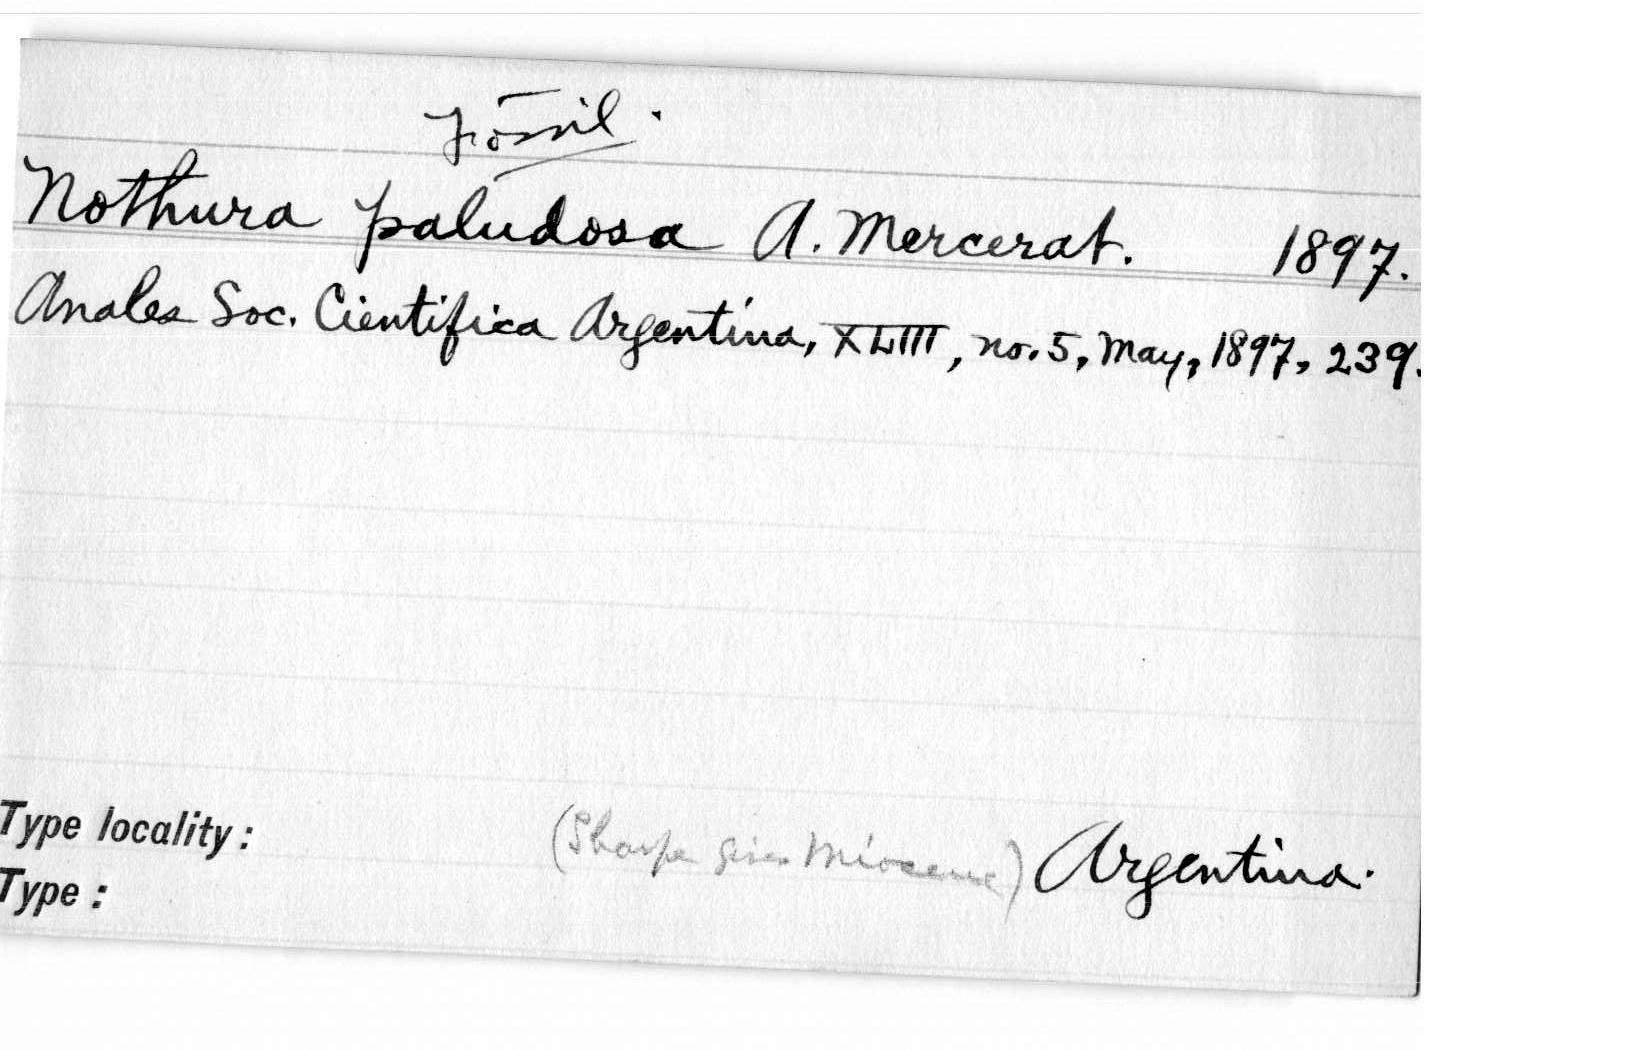 Fossil.
Nothura paludosa A. Mercerat. 1897.
Anales Soc. Cientifica Argentina, XLIII, no. 5, May, 1897, 239.
Type locality: (Sharpe gives Miocene) Argentina.
Type: